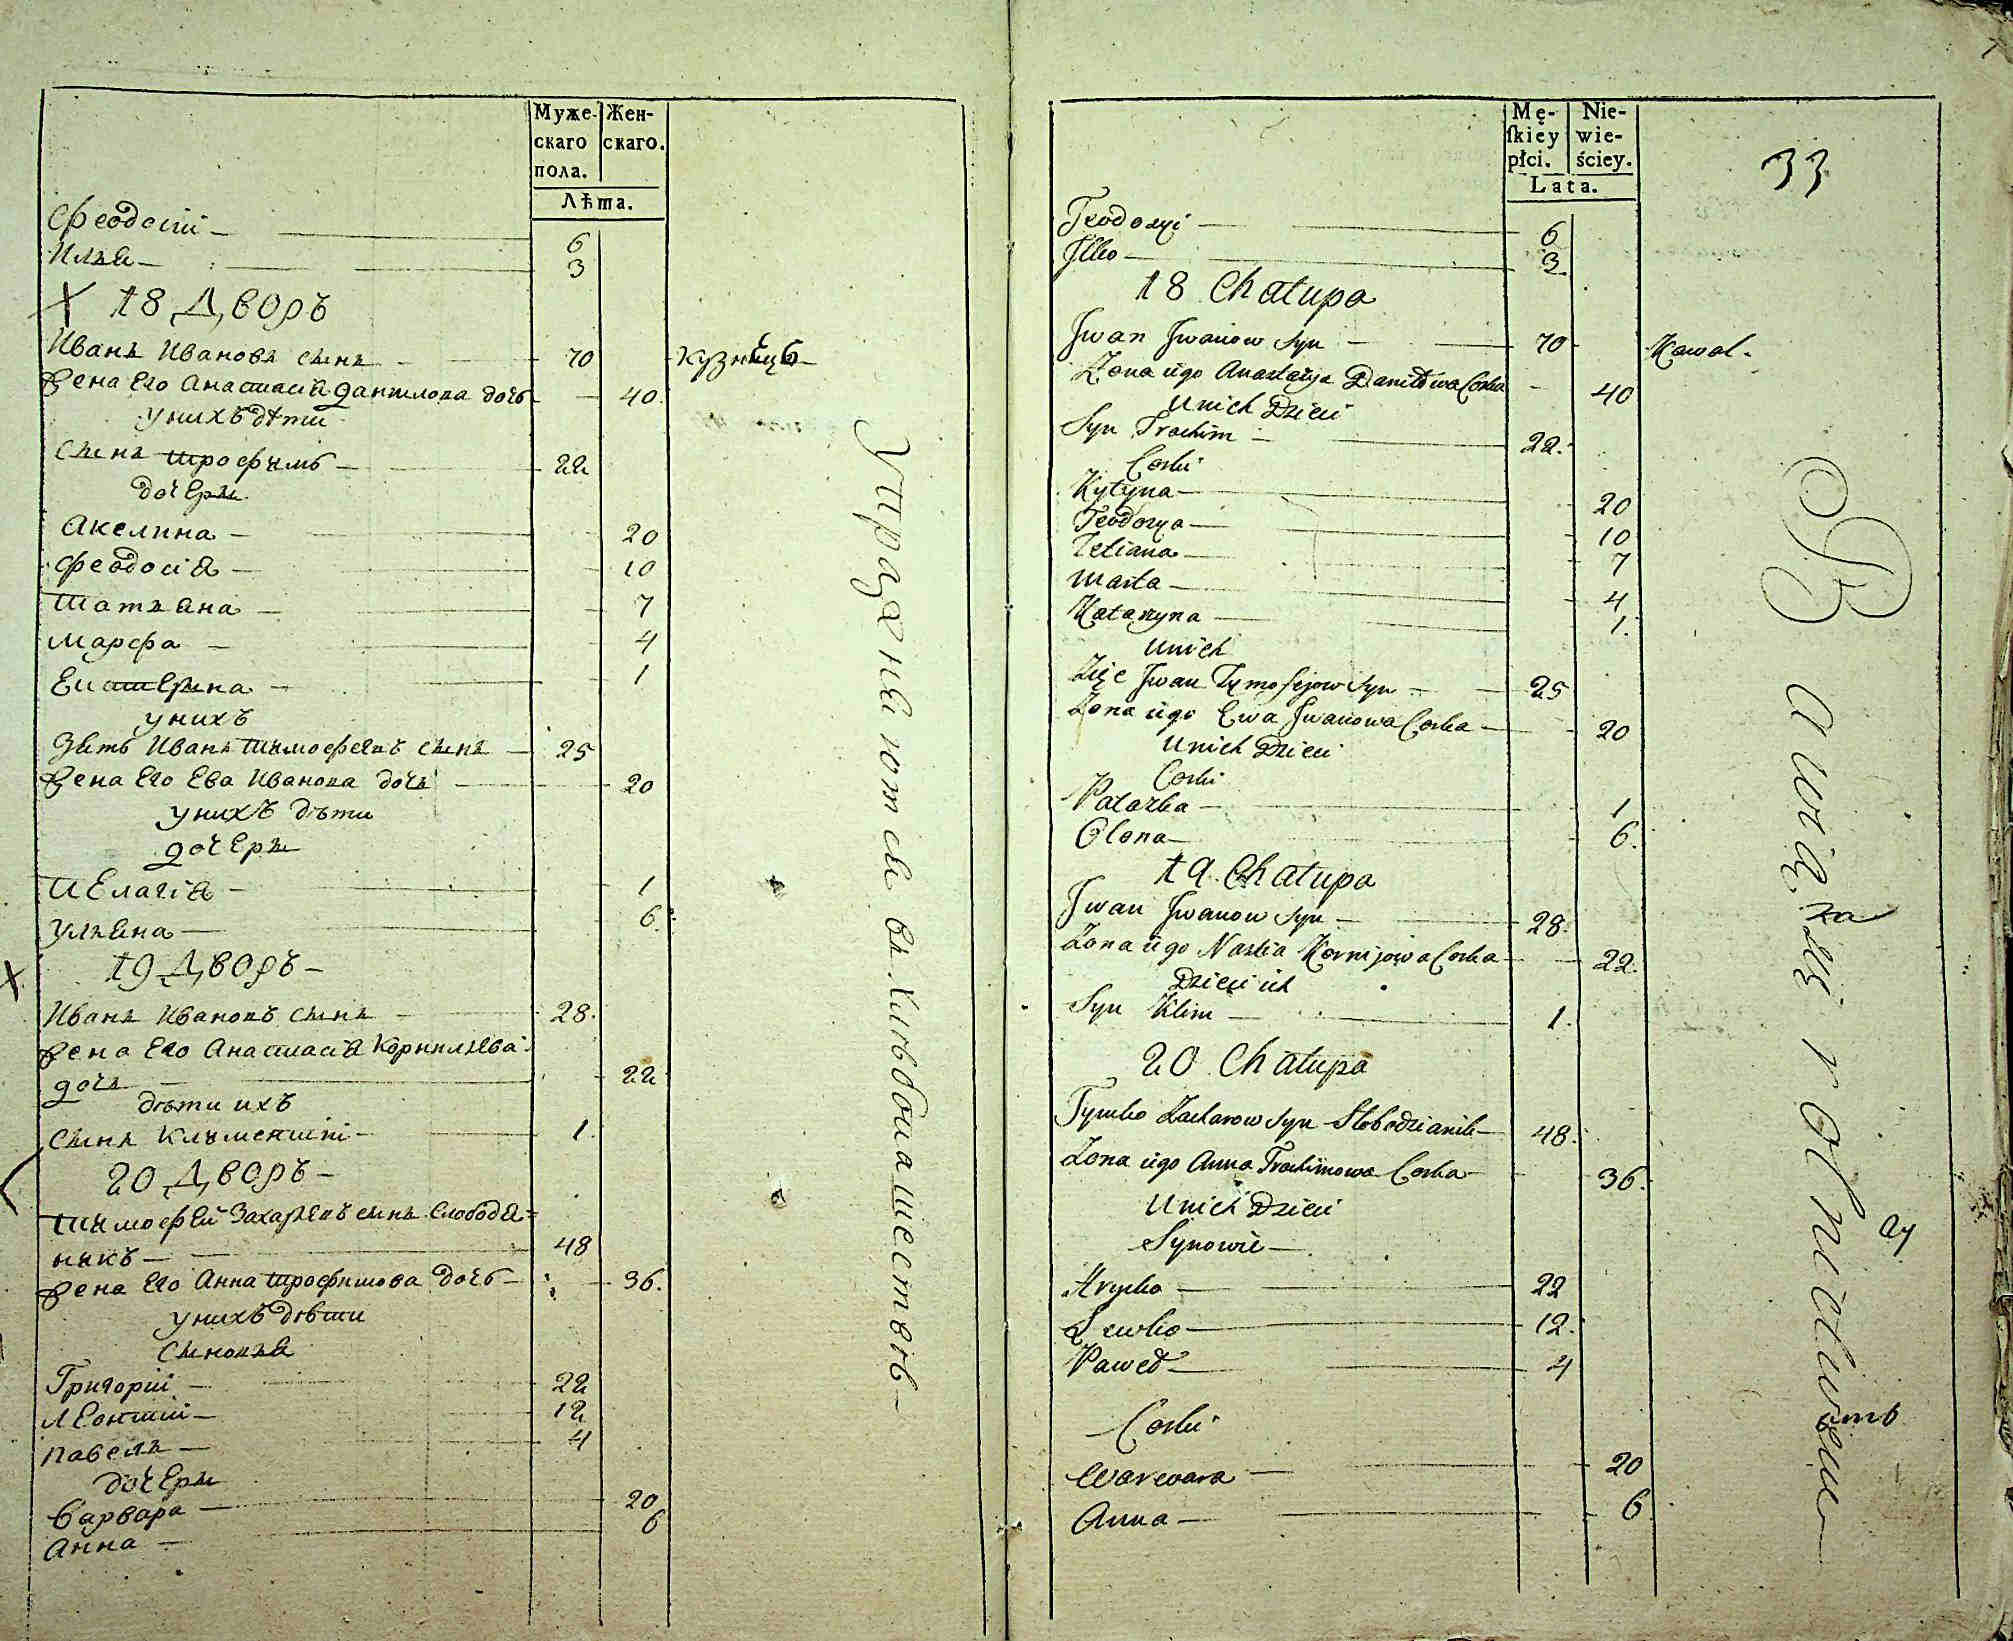 Муже-
скаго
пола.
Жен-
скаго.
Лѣта.
Феодосій — 6
Илья — 3
18 Дворъ
Иванъ Ивановъ сынъ — 70 кузнѣцъ
Жена Его Анастасія Данилова дочь — 40
У нихъ дѣти
Сынъ Трофимъ — 22
Дочери
Акелина — 20
Феодосія — 10
Татьяна — 7
Марфа — 4
Екатерина — 1
У нихъ
Зять Иванъ Тимофеевъ сынъ — 25
Жена Его Ева Иванова дочь — 20
У нихъ дѣти
Дочери
Пелагія — 1
Ульяна — 6
19 Дворъ —
Иванъ Ивановъ сынъ — 28.
Жена Его Анастасія Корнильева
дочь — 22
Дѣти ихъ
Сынъ Климентій — 1.
20 Дворъ —
Тимофей Захарьевъ сынъ Слободя=
никъ — 48
Жена Его Анна Трофимова дочь — 36.
У нихъ дѣти
Сыновья
Григорій — 22
Леонтій — 12
Павелъ — 4
Дочери
Варвара — 20
Анна — 6
Упражняются въ хлѣбопашествѣ —
Mę-
ſkiey
płci.
Nie-
wie-
ściey.
Lata.
33
Teodozyi — 6
Ilko — 3.
18 Chałupa
Iwan Iwanow Syn — 70 Kowal.
Żona iego Anastazya Daniłowa Corka — 40
U nich Dzieci
Syn Trochim — 22.
Corki
Kylyna — 20
Teodozya — 10
Tetiana — 7
Marta — 4
Katarzyna — 1.
U nich
Zięć Iwan Tymofejow Syn — 25
Żona iego Ewa Iwanowa Corka — 20
U nich Dzieci
Corki
Pałazka — 1
Olona — 6.
19 Chałupa
Iwan Iwanow Syn — 28.
Żona iego Nastia Kornijowa Corka — 22.
Dzieci ich
Syn Klim — 1.
20 Chałupa
Tymko Zacharow Syn Słobodzianik — 48.
Żona iego Anna Trochimowa Corka — 36.
U nich Dzieci
Synowie —
Hryćko — 22
Lewko — 12.
Paweł — 4
Corki
Warwara — 20
Anna — 6.
Bawią się rolnictwem